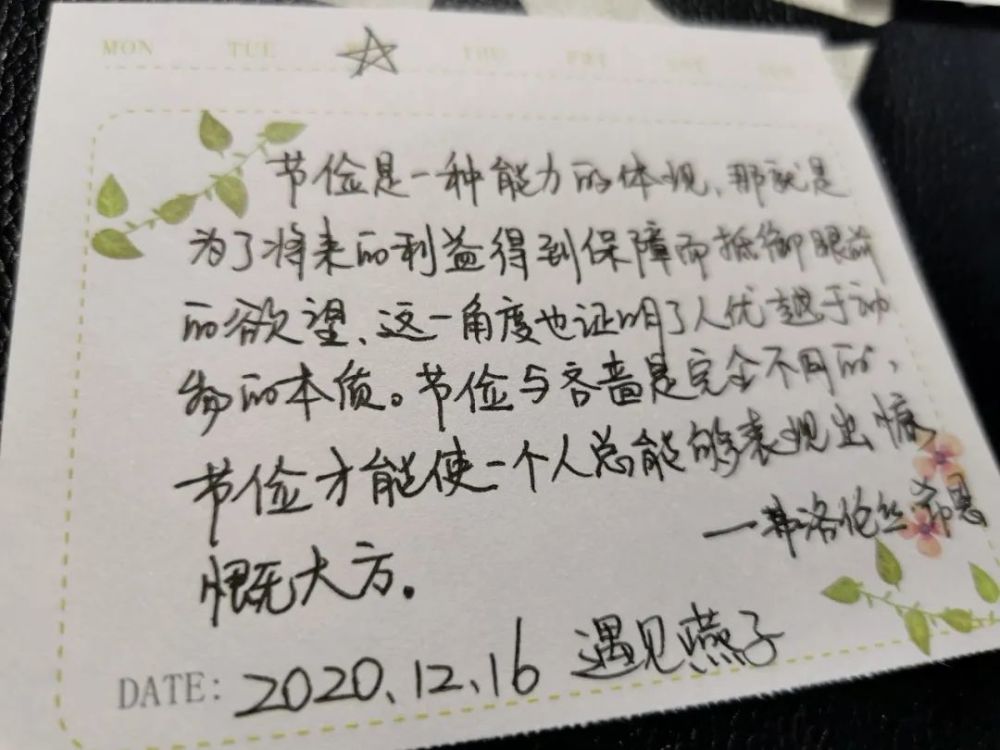 MON TUE THU FRI SAT SUN
节俭是一种能力的体现、那就是
为了将来的利益得到保障而抵御眼前
的欲望、这一角度也证明了人优越于动
物的本质。节俭与吝啬是完全不同的，
节俭才能使一个人总能够表现出慷
慨大方。
一弗洛伦丝·希恩
DATE: 2020.12.16 遇见燕子